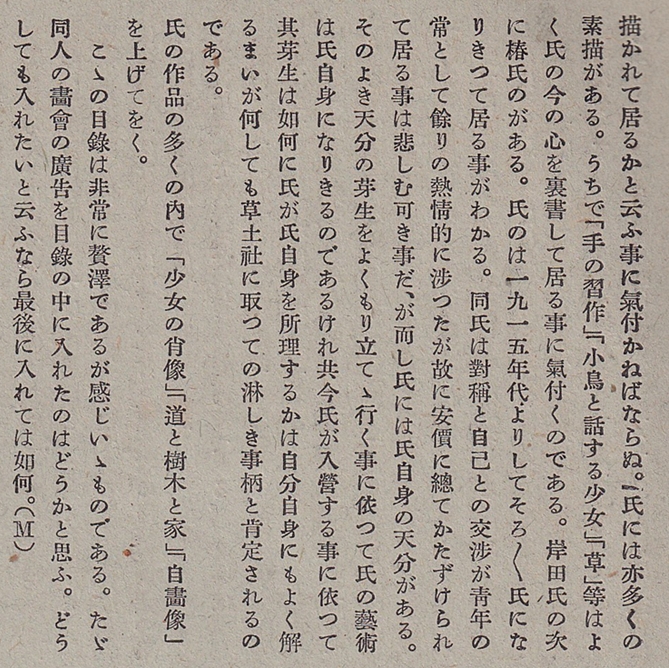 描かれて居るかと云ふ事に氣付かねばならぬ。一氏には亦多くの
素描がある。うちで「手の習作」「小鳥と話する少女」「草」等はよ
く氏の今の心を裏書して居る事に氣付くのである。岸田氏の次
に椿氏のがある。氏のは一九一五年代よりしてそろ〳〵氏にな
りきつて居る事がわかる。同氏は對稱と自己との交渉が靑年の
常として餘りの熱情的に涉つたが故に安價に總てかたずけられ
て居る事は悲しむ可き事だ、が而し氏には氏自身の天分がある。
そのよき天分の芽生をよくもり立てゝ行く事に依つて氏の藝術
は氏自身になりきるのであるけれ共今氏が入營する事に依つて
其芽生は如何に氏が氏自身を所理するかは自分自身にもよく解
るまいが何しても草土社に取つての淋しき事柄と肯定されるの
である。
氏の作品の多くの内で「少女の肖像」「道と樹木と家」「自畫像」
を上げてをく。
こゝの目錄は非常に贅澤であるが感じいゝものである。たゞ
同人の畫會の廣告を目錄の中に入れたのはどうかと思ふ。どう
しても入れたいと云ふなら最後に入れては如何。(M)